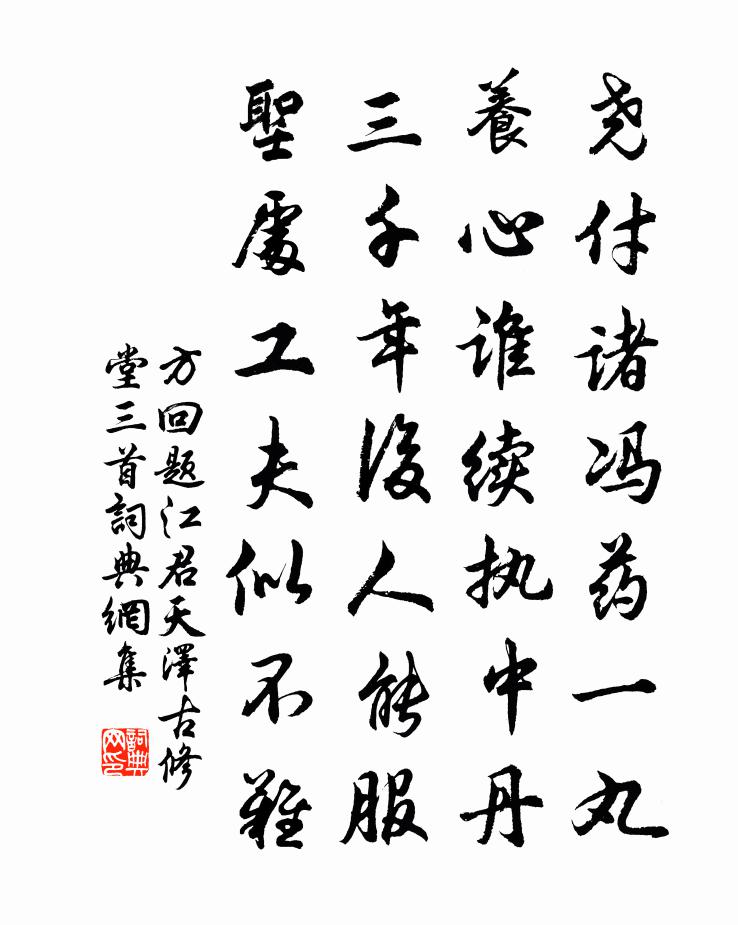 尧付诸冯药一丸
養心谁续执中丹
三千年後人能服
聖處工夫似不難
方回题江君天澤古修
堂三首詞典網集
詞典网印